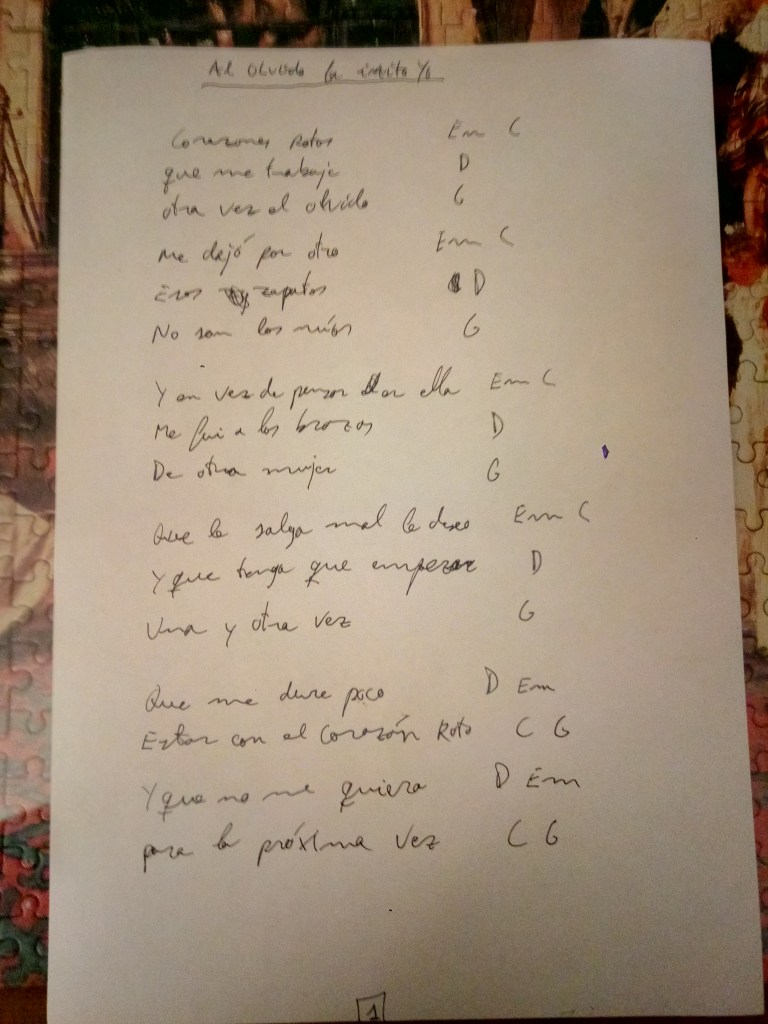 Al olvido lo invito Yo
Corazones Rotos Em C
que me trabaje D
otra vez el olvido G
Me dejó por otro Em C
Esos zapatos D
No son los míos G
Y en vez de pensar en ella Em C
Me fui a los brazos D
De otra mujer G
Que le salga mal le deseo Em C
Y que tenga que empezar D
Una y otra vez G
Que me dure poco D Em
Estar con el corazón Roto C G
Y que no me quiera D Em
para la próxima vez C G
1